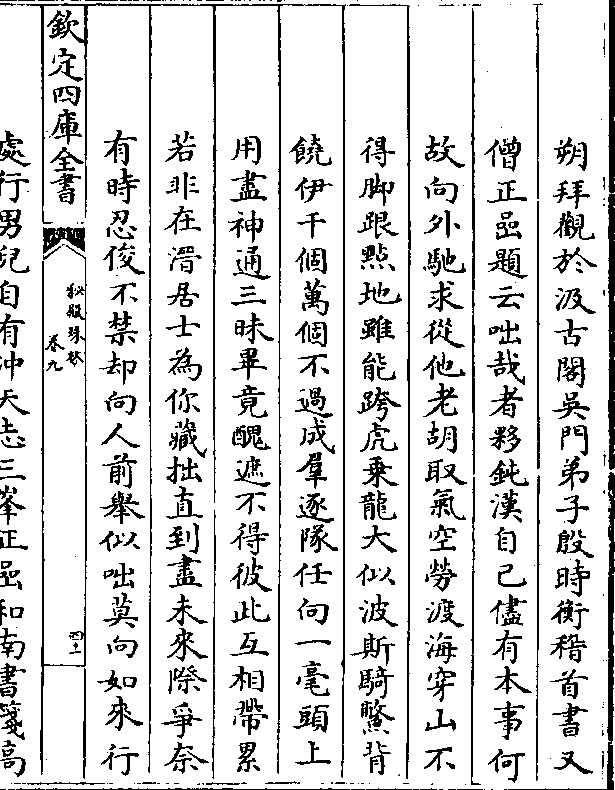 朔拜觀於汲古閣吳門弟子殷時衡稽首書又
僧正嵒題云咄哉者夥鈍漢自己儘有本事何
故向外馳求從他老胡取氣空勞渡海穿山不
得脚跟㸃地雖能跨虎乗龍大似波斯騎鱉背
饒伊千個萬個不過成羣逐隊任向一毫頭上
用盡神通三昧畢竟醜遮不得彼此互相帶累
若非在潛居士為你藏拙直到盡未來際爭奈
有時忍俊不禁却向人前舉似咄莫向如來行
欽定四庫全書
秘殿珠林
卷九
四十
處行男兒自有沖天志三峯正嵒和南書箋高